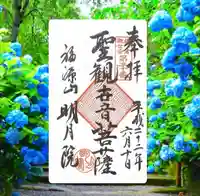 奉拝
平成二十二年
六月十日
聖観世音菩薩
福源山 明月院